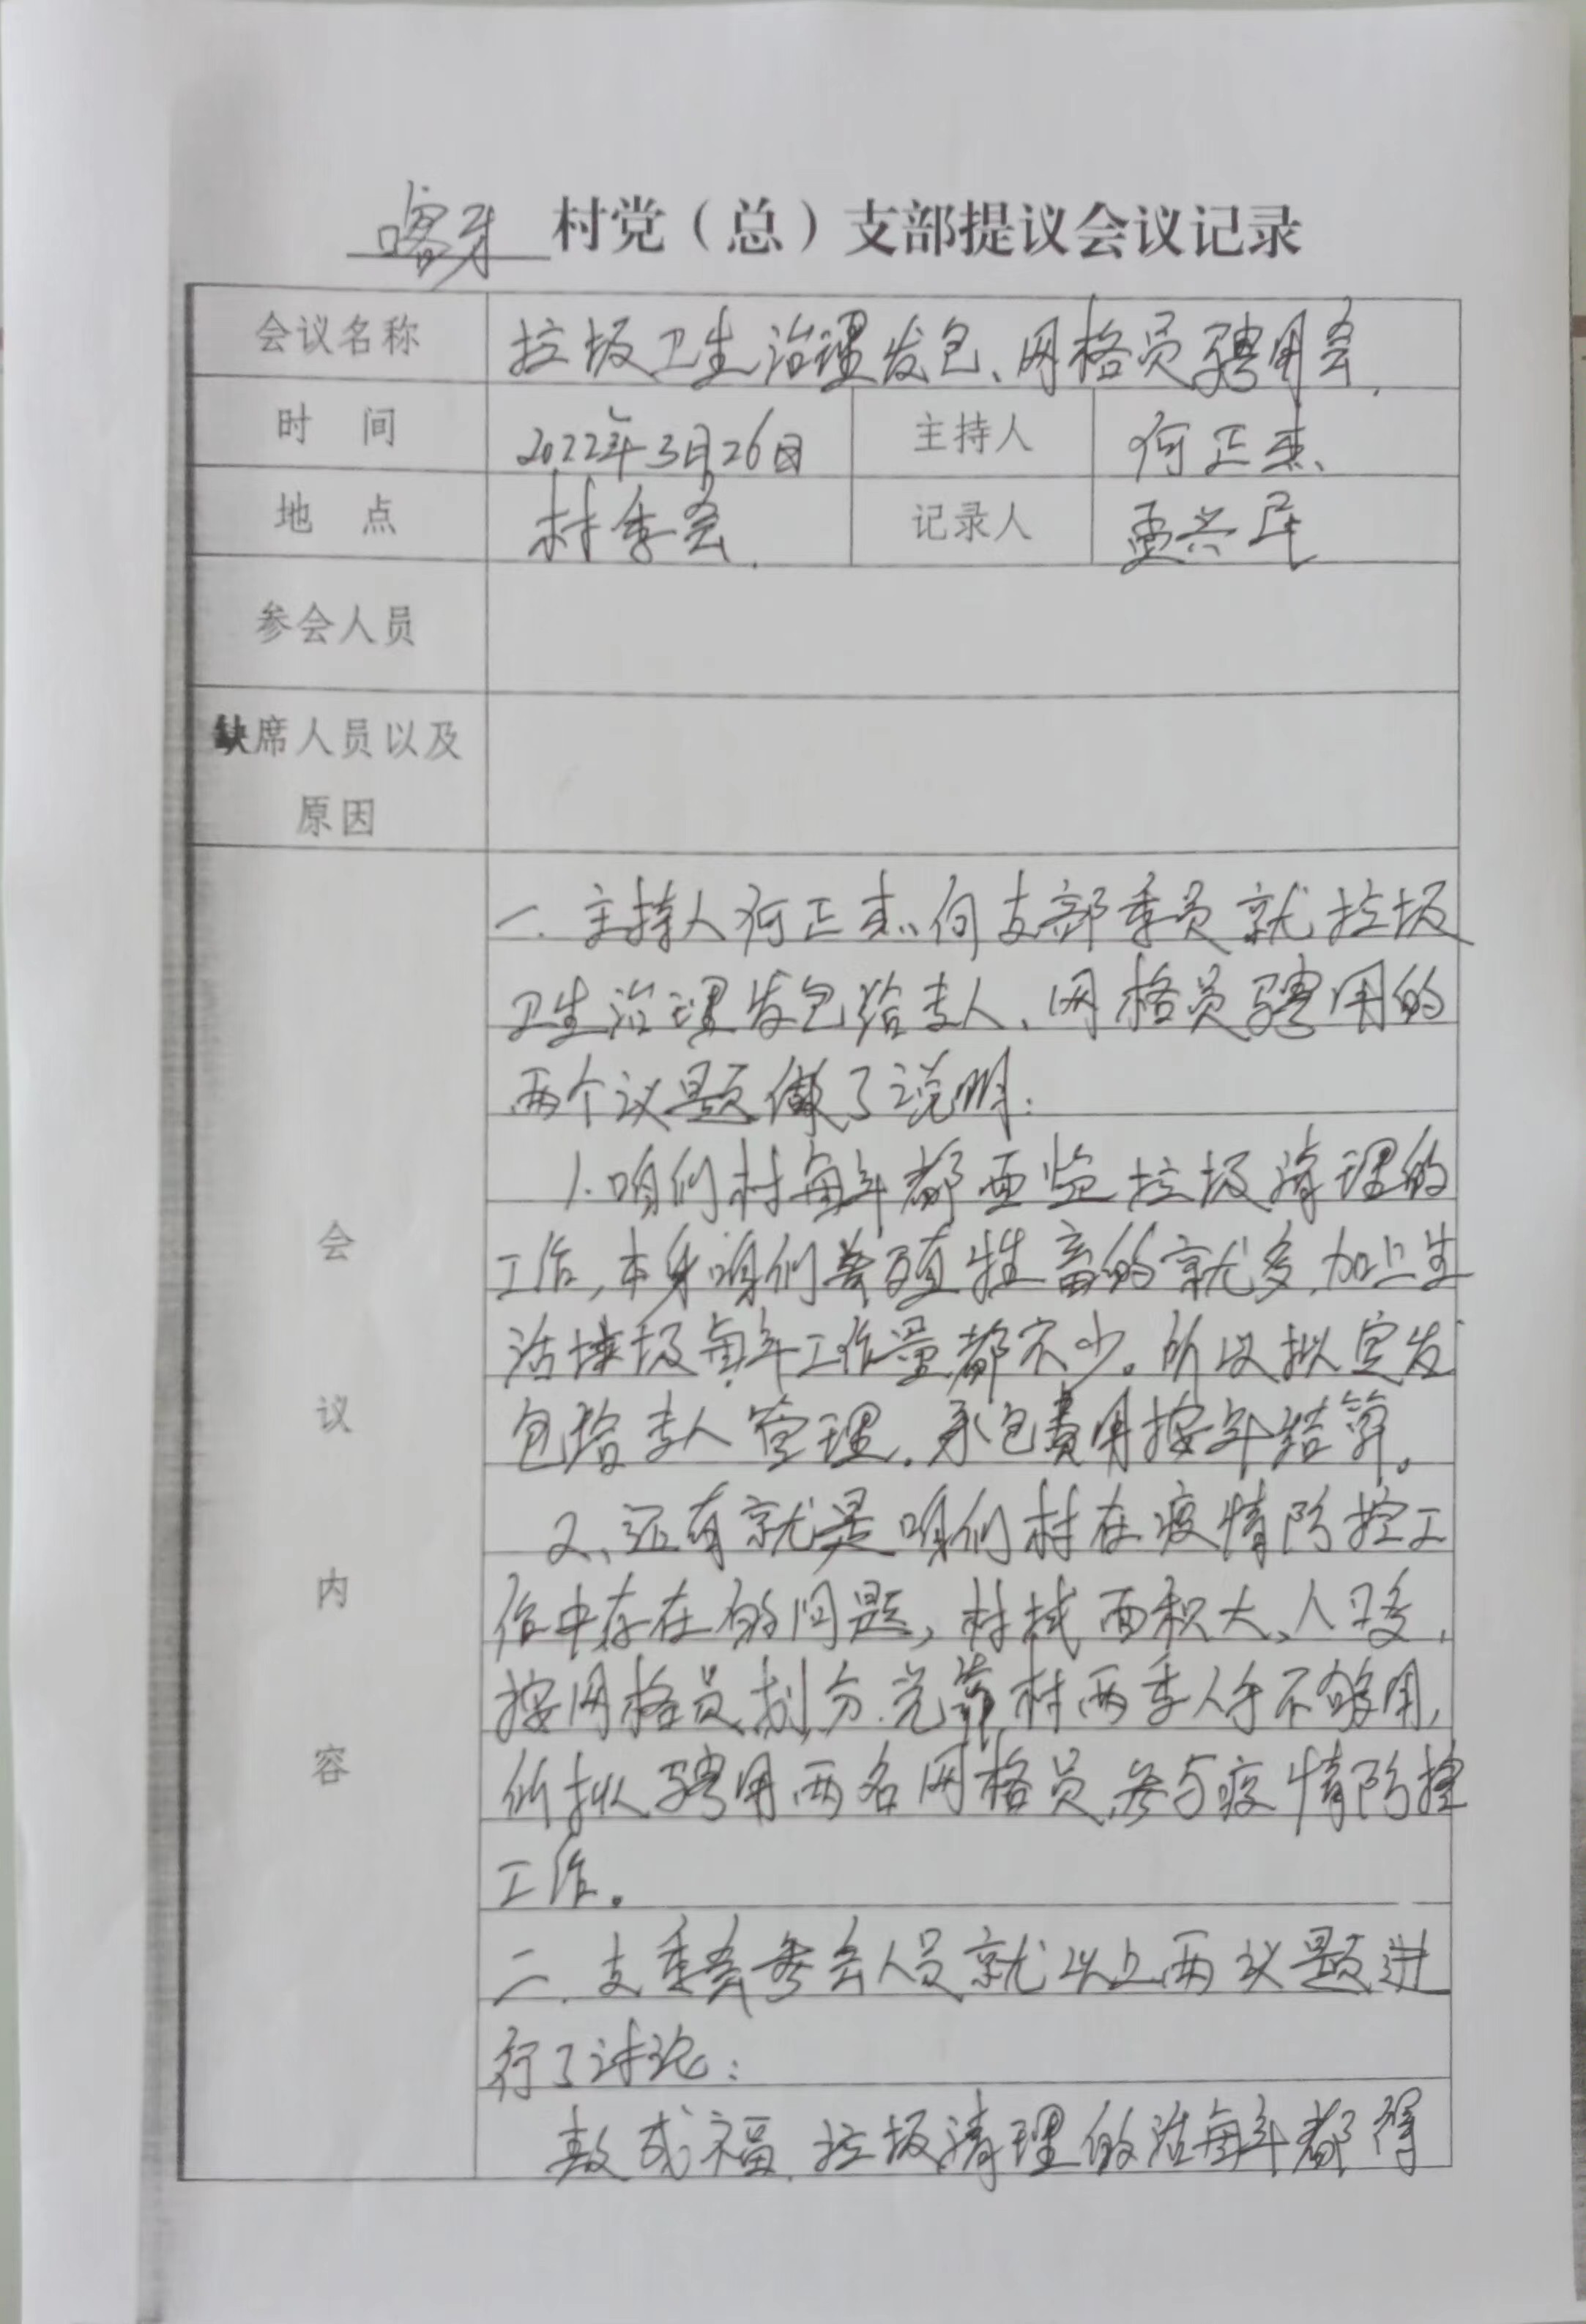 喀牙 村党（总）支部提议会议记录
会议名称 垃圾卫生治理发包、网格员聘用会.
时 间 2022年3月26日 主持人 何正杰
地 点 村委会. 记录人 孟兴民
参会人员
缺席人员以及
原因
会议内容
一. 主持人何正杰向支部委员就垃圾
卫生治理发包给专人、网格员聘用的
两个议题做了说明:
1.咱们村每年都面临垃圾清理的
工作,本身咱们养殖牲畜的就多,加上生
活垃圾每年工作量都不少。所以拟定发
包给专人管理.承包费用按年结算。
2、还有就是咱们村在疫情防控工
作中存在的问题,村域面积大、人口多,
按网格员划分.光靠村两委人手不够用,
所拟聘用两名网格员,参与疫情防控
工作。
二. 支委会参会人员就以上两议题进
行了讨论:
敖成福.垃圾清理的活每年都得